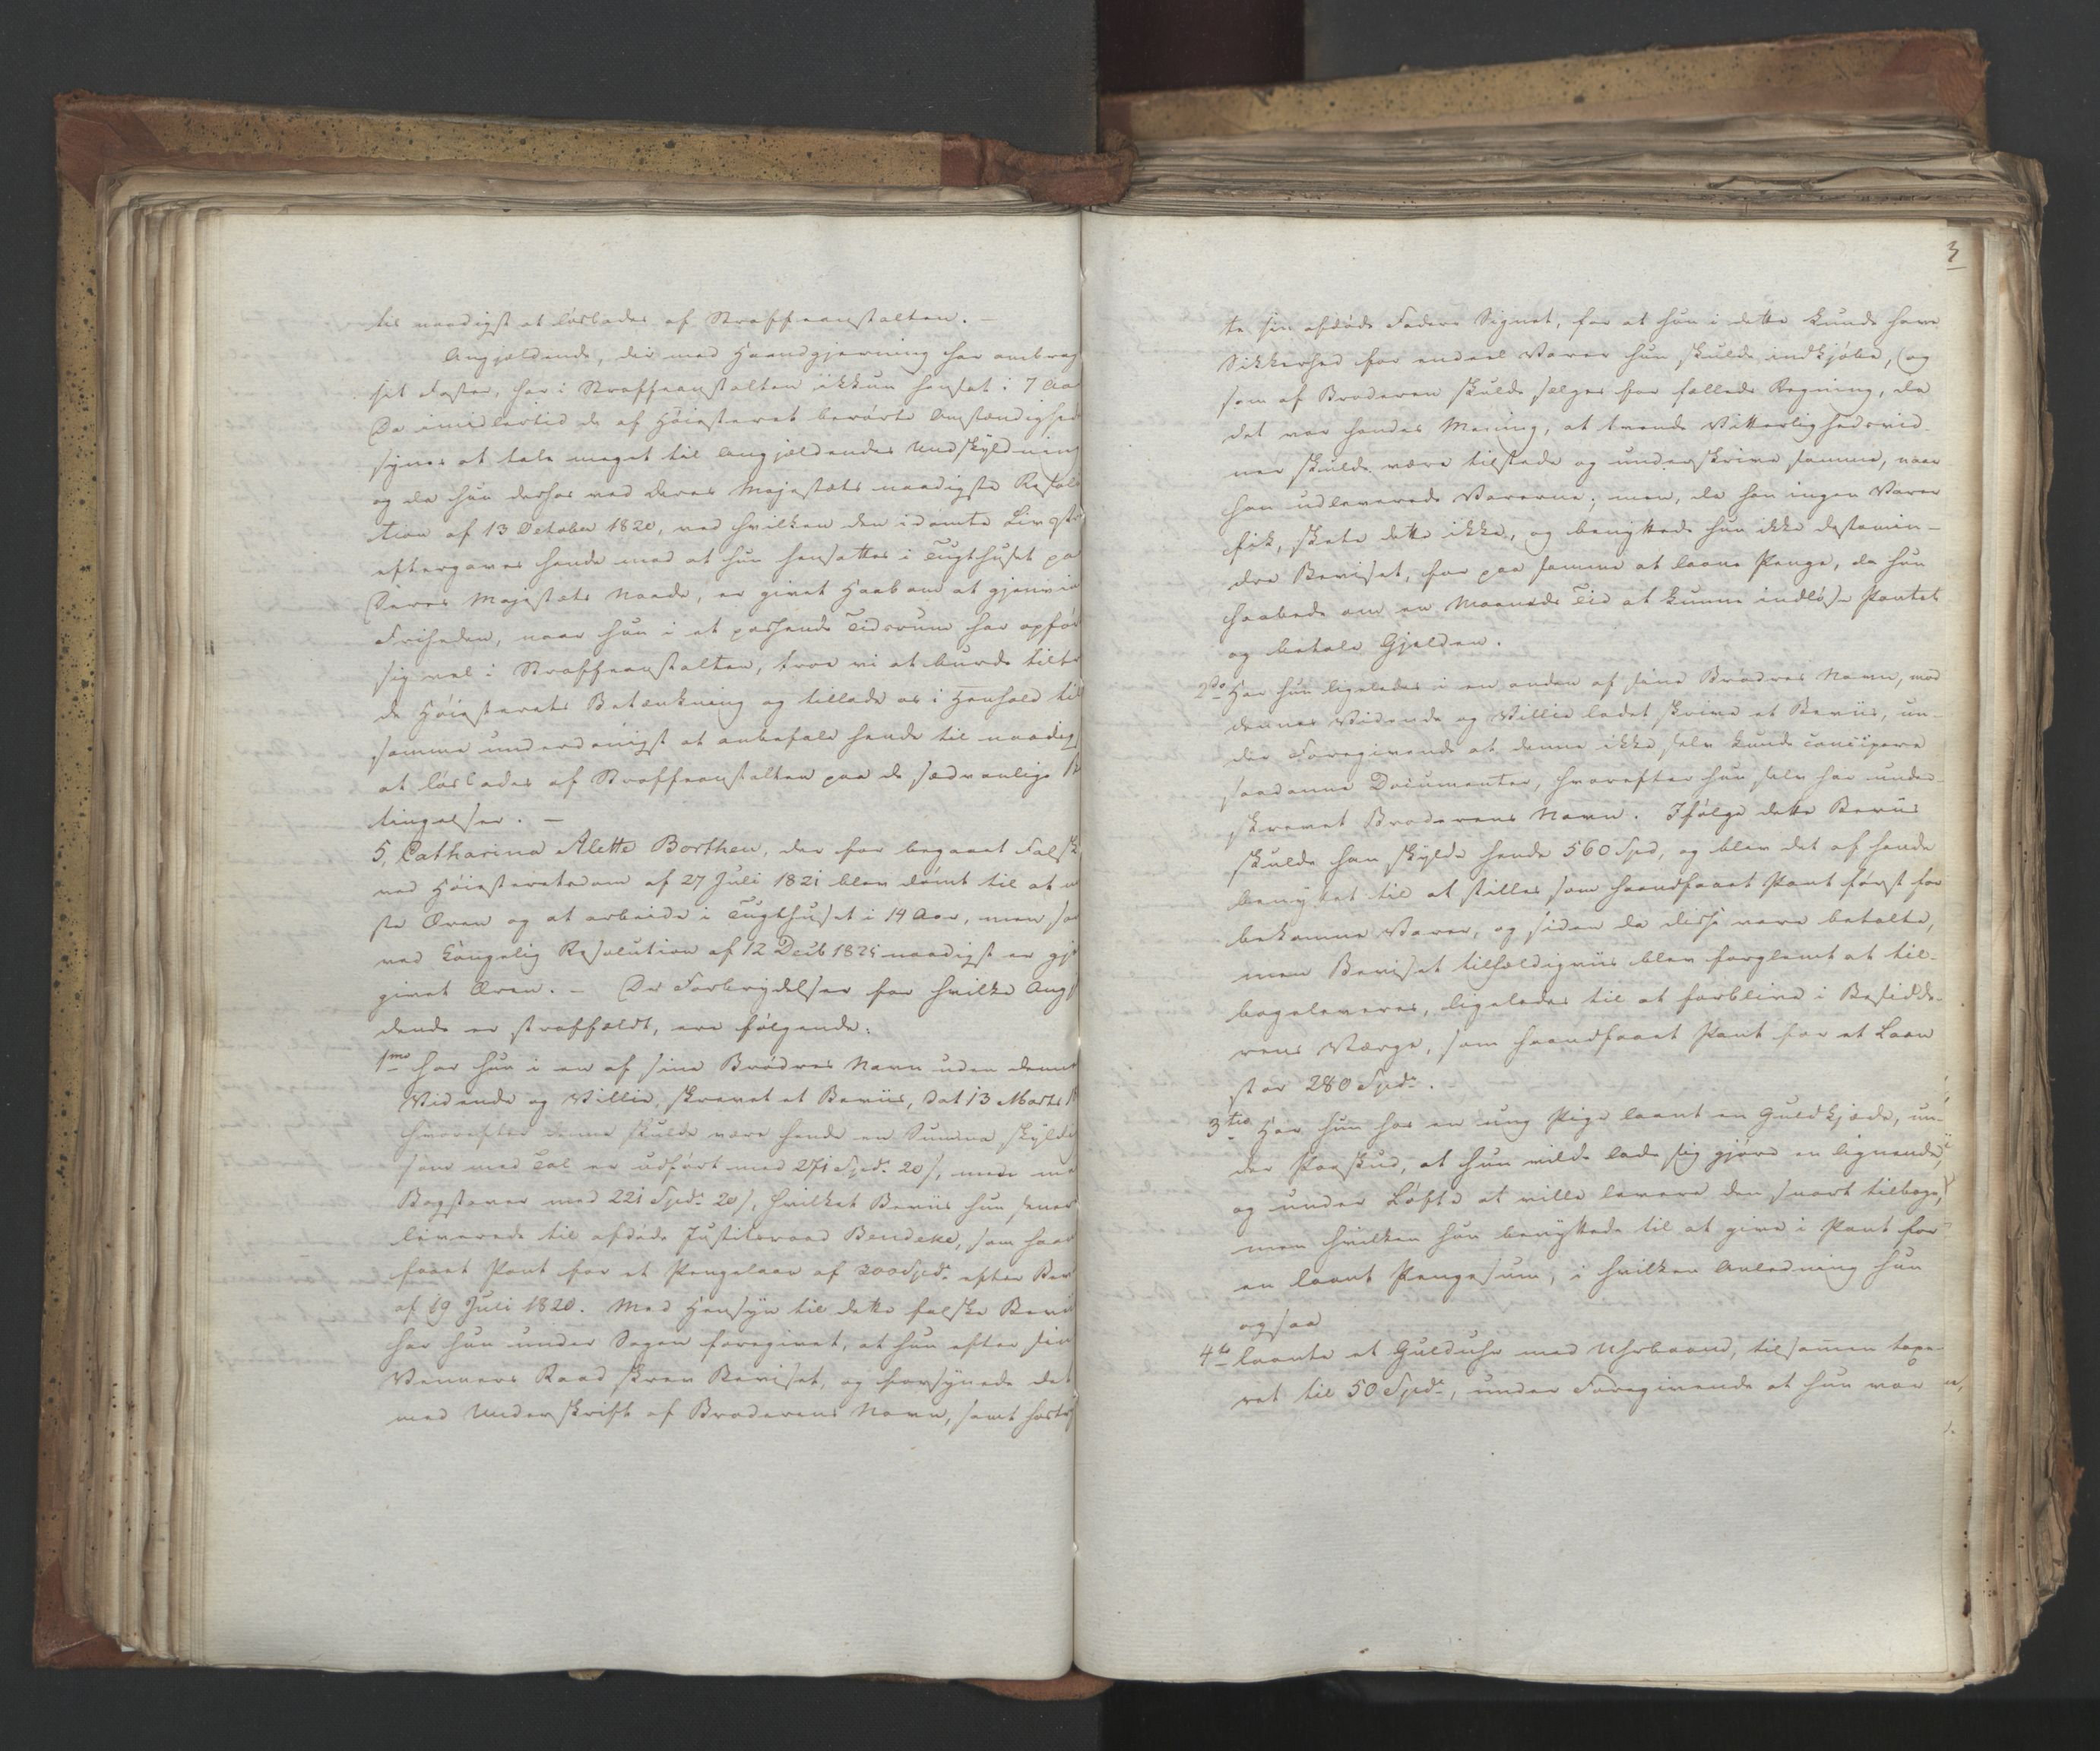 til naadigst at løslades af Straffeanstalten. —
Angjældende, der med Haandgjerning har ombrag
sit Foster, har i Straffeanstalten ikkun hensat i 7 Aar
Da imidlertid de af Høiesteret berørte Omstændighed
synes at tale meget til Angjældendes Undskyldning
og da hun derhos ved Deres Majestæts naadigste Resolu
tion af 13 October 1820, ved hvilken den idømte Livsst
eftergaves hende mod at hun hensattes i Tugthuset paa
Deres Majestæts Naade, er givet Haab om at gjenvin
Friheden, naar hun i et passende Tidsrum har opfør
sig vel i Straffeanstalten, troe vi at burde tiltr
de Høiesterets Betænkning og tillade os i Henhold til
samme underdanigst at anbefale hende til naadigst
at løslades af Straffeanstalten paa de sædvanlige B
tingelser. —
5, Catharina Alette Borthen, der for begaaet Falsk
ved Høiesteretsdom af 27 Juli 1821 blev dømt til at m
ste Æren og at arbeide i Tugthuset i 14 Aar, men so
ved Kongelig Resolution af 12 Decb 1825 naadigst er gje
givet Æren. — De Forbrydelser for hvilke Angj
dende er straffældt, ere følgende:
1mo har hun i en af sine Brødres Navn uden denne
Vidende og Villie, skrevet et Beviis, dat 13 Marts 1
hvorefter denne skulde være hende en Summa skyldig
som med Tal er udført med 271 Spd. 20 s, men me
Bogstaver med 221 Spd. 20 s, hvilket Beviis hun senere
leverede til afdøde Justitsraad Bendeke, som haand
faaet Pant for et Pengelaan af 200 Spd. efter Bev
af 19 Juli 1820. Med Hensyn til dette falske Bevii
har hun under Sagen foregivet, at hun efter sin
Venners Raad skrev Beviset, og forsynede det
med Underskrift af Broderens Navn, samt hosts
3
te sin afdøde Faders Signet, for at hun i dette kunde have
Sikkerhed for endeel Varer hun skulde indkjøbe, og
som af Broderen skulde sælges for fælleds Regning, da
det var hendes Mening, at tvende Vitterlighedsvid-
ner skulde være tilstede og underskrive samme, naar
hun udleverede Varerne; men, da han ingen Varer
fik, skete dette ikke, og benyttede hun ikke destomin-
dre Beviset, for paa samme at laane Penge, da hun
haabede om en Maaneds Tid at kunne indløse Pantet
og betale Gjelden.
2do Har hun ligeledes i en anden af sine Brødres Navn, mod
dennes Vidende og Villie ladet skrive et Beviis, un-
der Foregivende at denne ikke selv kunde concipere
saadanne Documenter, hvorefter hun selv har under-
skrevet Broderens Navn. Ifølge dette Beviis
skulde han skylde hende 560 Spd, og blev det af hende
benyttet til at stilles som haandfaaet Pant først for
bekomne Varer, og siden da disse vare betalte,
men Beviset tilfældigviis blev forglemt at til-
bageleveres, ligeledes til at forblive i Besidde-
rens Værge, som haandfaaet Pant for et Laan
stor 280 Spd.
3tio Har hun hos en ung Pige laant en Guldkjæde, un-
der Paaskud, at hun vilde lade sig gjøre en lignende,
og under Løfte at ville levere den snart tilbage,
men hvilken hun benyttede til at give i Pant for
en laant Pengesum, i hvilken Anledning hun
ogsaa
4to laante et Gulduhr med Uhrbaand, tilsammen taxe-
ret til 50 Spd., under Foregivende at hun var